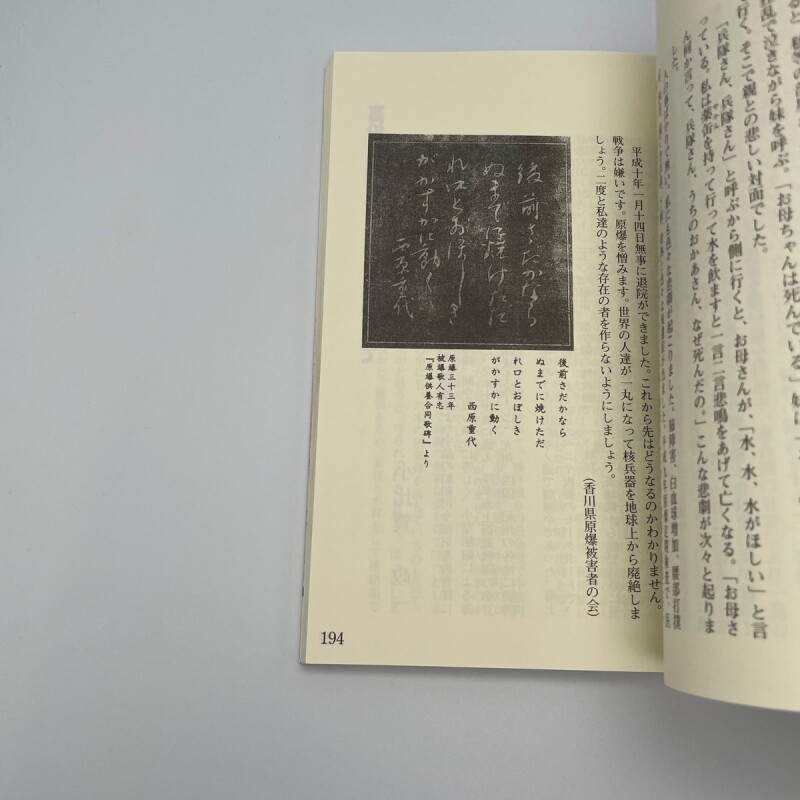 乱で泣きながら妹を呼ぶ。「お母ちゃんは死んでいる」
行く。そこで親との悲しい対面でした。
「兵隊さん、兵隊さん」と呼ぶから側に行くと、お母さんが、「水、水、水がほしい」と言
っている。私は薬缶を持って行って水を飲ますと一言二言悲鳴をあげて亡くなる。「お母さ
ん何か言って、兵隊さん、うちのおかあさん、なぜ死んだの。」こんな悲劇が次々と起りま
した。
が起こりました。脳障害、白血球増加、腰部打撲
平成十年一月十四日無事に退院ができました。これから先はどうなるのかわかりません。
戦争は嫌いです。原爆を憎みます。世界の人達が一丸になって核兵器を地球上から廃絶しま
しょう。二度と私達のような存在の者を作らないようにしましょう。
(香川県原爆被害者の会)
後前さだかなら
ぬまでに焼けただ
れ口とおぼしき
がかすかに動く
西原重代
後前さだかなら
ぬまでに焼けただ
れ口とおぼしき
がかすかに動く
西原重代
原爆三十三年
被爆歌人有志
『原爆供養合同歌碑』より
194